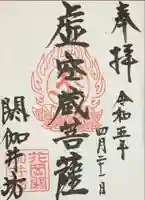 奉拝
令和五年
四月二十一日
虚空蔵菩薩
閼伽井坊